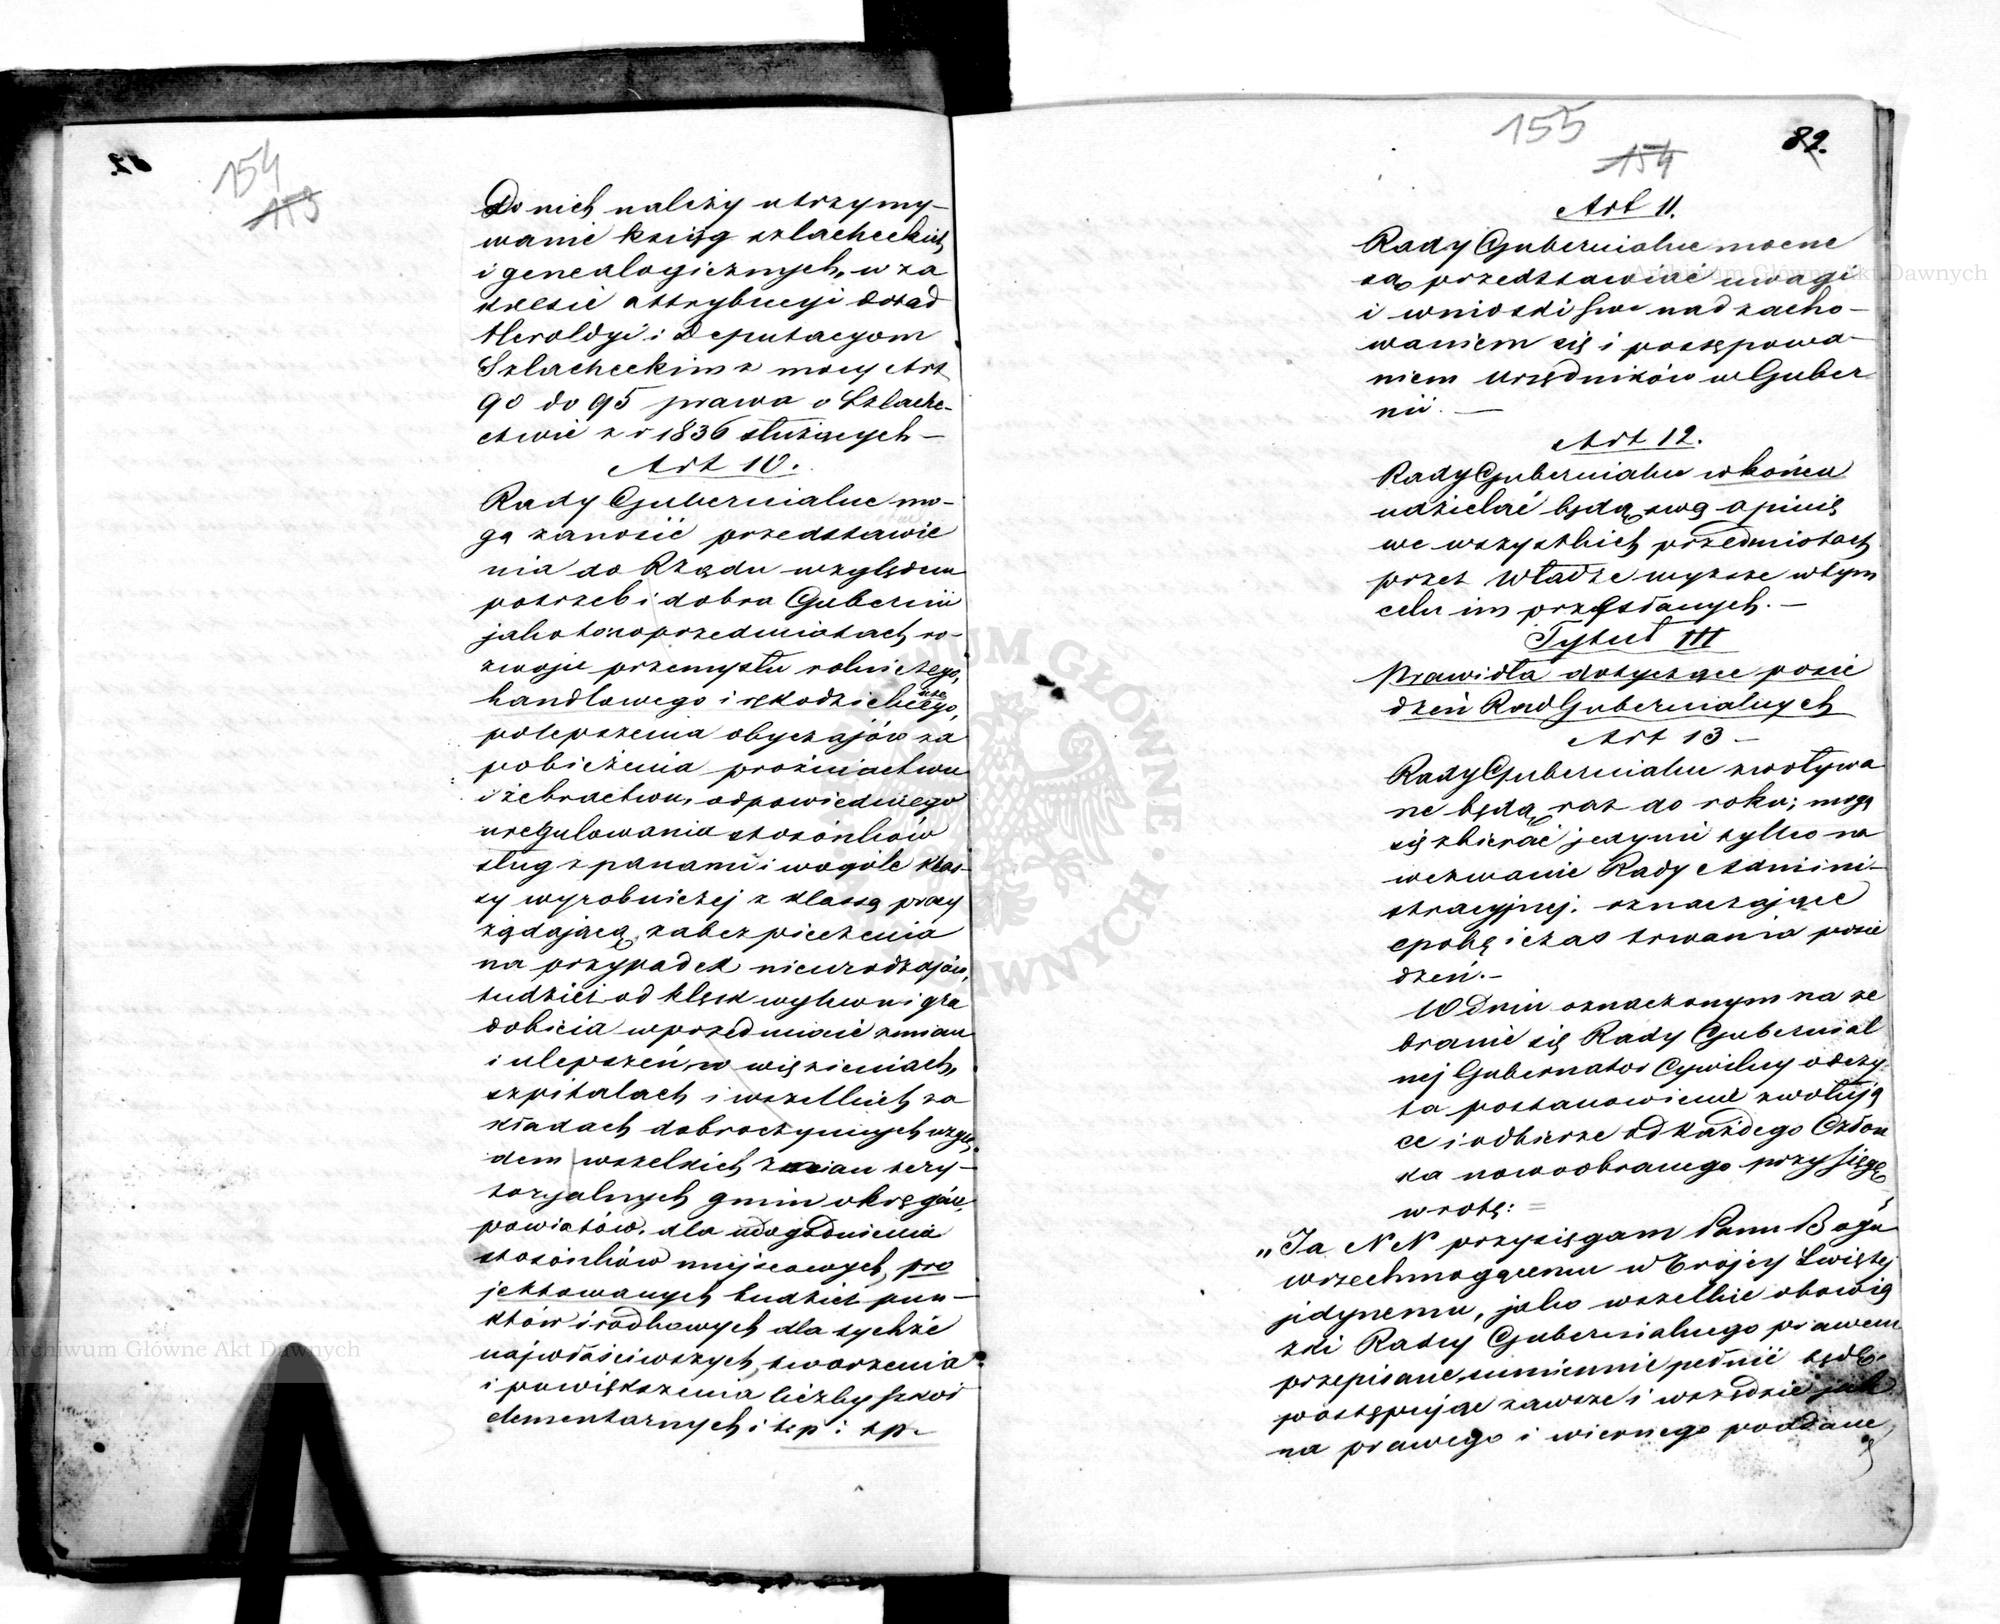 154
153
Do nich należy utrzymy-
wanie ksiąg szlacheckich
i genealogicznych, w za
kresie attrybucyi dotąd
Heroldyi i Deputacyom
Szlacheckim z mocy Art
90 do 95 prawa o Szlache-
ctwie z r 1836 służących—
Art 10.
Rady Gubernialne mo-
gą zanosić przedstawie
nia do Rządu względem
potrzeb i dobra Gubernii
jako to: o przedmiotach, ro-
zwoju przemysłu rolniczego,
handlowego i rękodzielniczego,
polepszenia obyczajów za
pobieżenia próżniactwu
i żebractwu, odpowiedniego
uregulowania stosunków
sług z panami i wogóle klas-
sy wyrobniczej z klassą pracy
żądającą, zabezpieczenia
na przypadek nieurodzajów,
tudzież od klęsk wylewu i gra
dobicia w przedmiocie zmian
i ulepszeń w więzieniach,
szpitalach i wszelkich za
kładach dobroczynnych wzglę
dem wszelkich zmian tery-
toryalnych gmin okręgów,
powiatów, dla udogodnienia
stosunków miejscowych, pro
jektowanych tudzież pun-
któw środkowych dla tychże
najwłaściwszych, tworzenia
i powiększenia liczby szkół
elementarnych i t.p: tp.
155
154
82.
Art 11.
Rady Gubernialne mocne
są przedstawiać uwagi
i wnioski swe nad zacho-
waniem się i postępowa-
niem Urzędników w Guber
nii.—
Art 12.
Rady Gubernialne w końcu
udzielać będą swą opinię
we wszystkich przedmiotach
przez Władze wyższe w tym
celu im przesłanych.—
Tytuł III
Prawidła dotyczące posie
dzeń Rad Gubernialnych
Art 13—
Rady Gubernialne zwoływa
ne będą raz do roku; mogą
się zbierać jedynie tylko na
wezwanie Rady Admini-
stracyjnej, oznaczające
epokę i czas trwania posie
dzeń.—
W Dniu oznaczonym na ze
branie się Rady Gubernial
nej Gubernator Cywilny odczy
ta postanowienie zwołują
ce i odbierze od każdego Człon
ka nowoobranego przysięgę
w rotę: =
„Ja NN przysięgam Panu Bogu
wszechmogącemu w Trójcy Świętej
jedynemu, jako wszelkie obowią
zki Radcy Gubernialnego prawem
przepisane, sumiennie pełnić będę,
postępując zawsze i wszędzie jak
na prawego i wiernego poddane
Archiwum Główne Akt Dawnych
Archiwum Główne Akt Dawnych